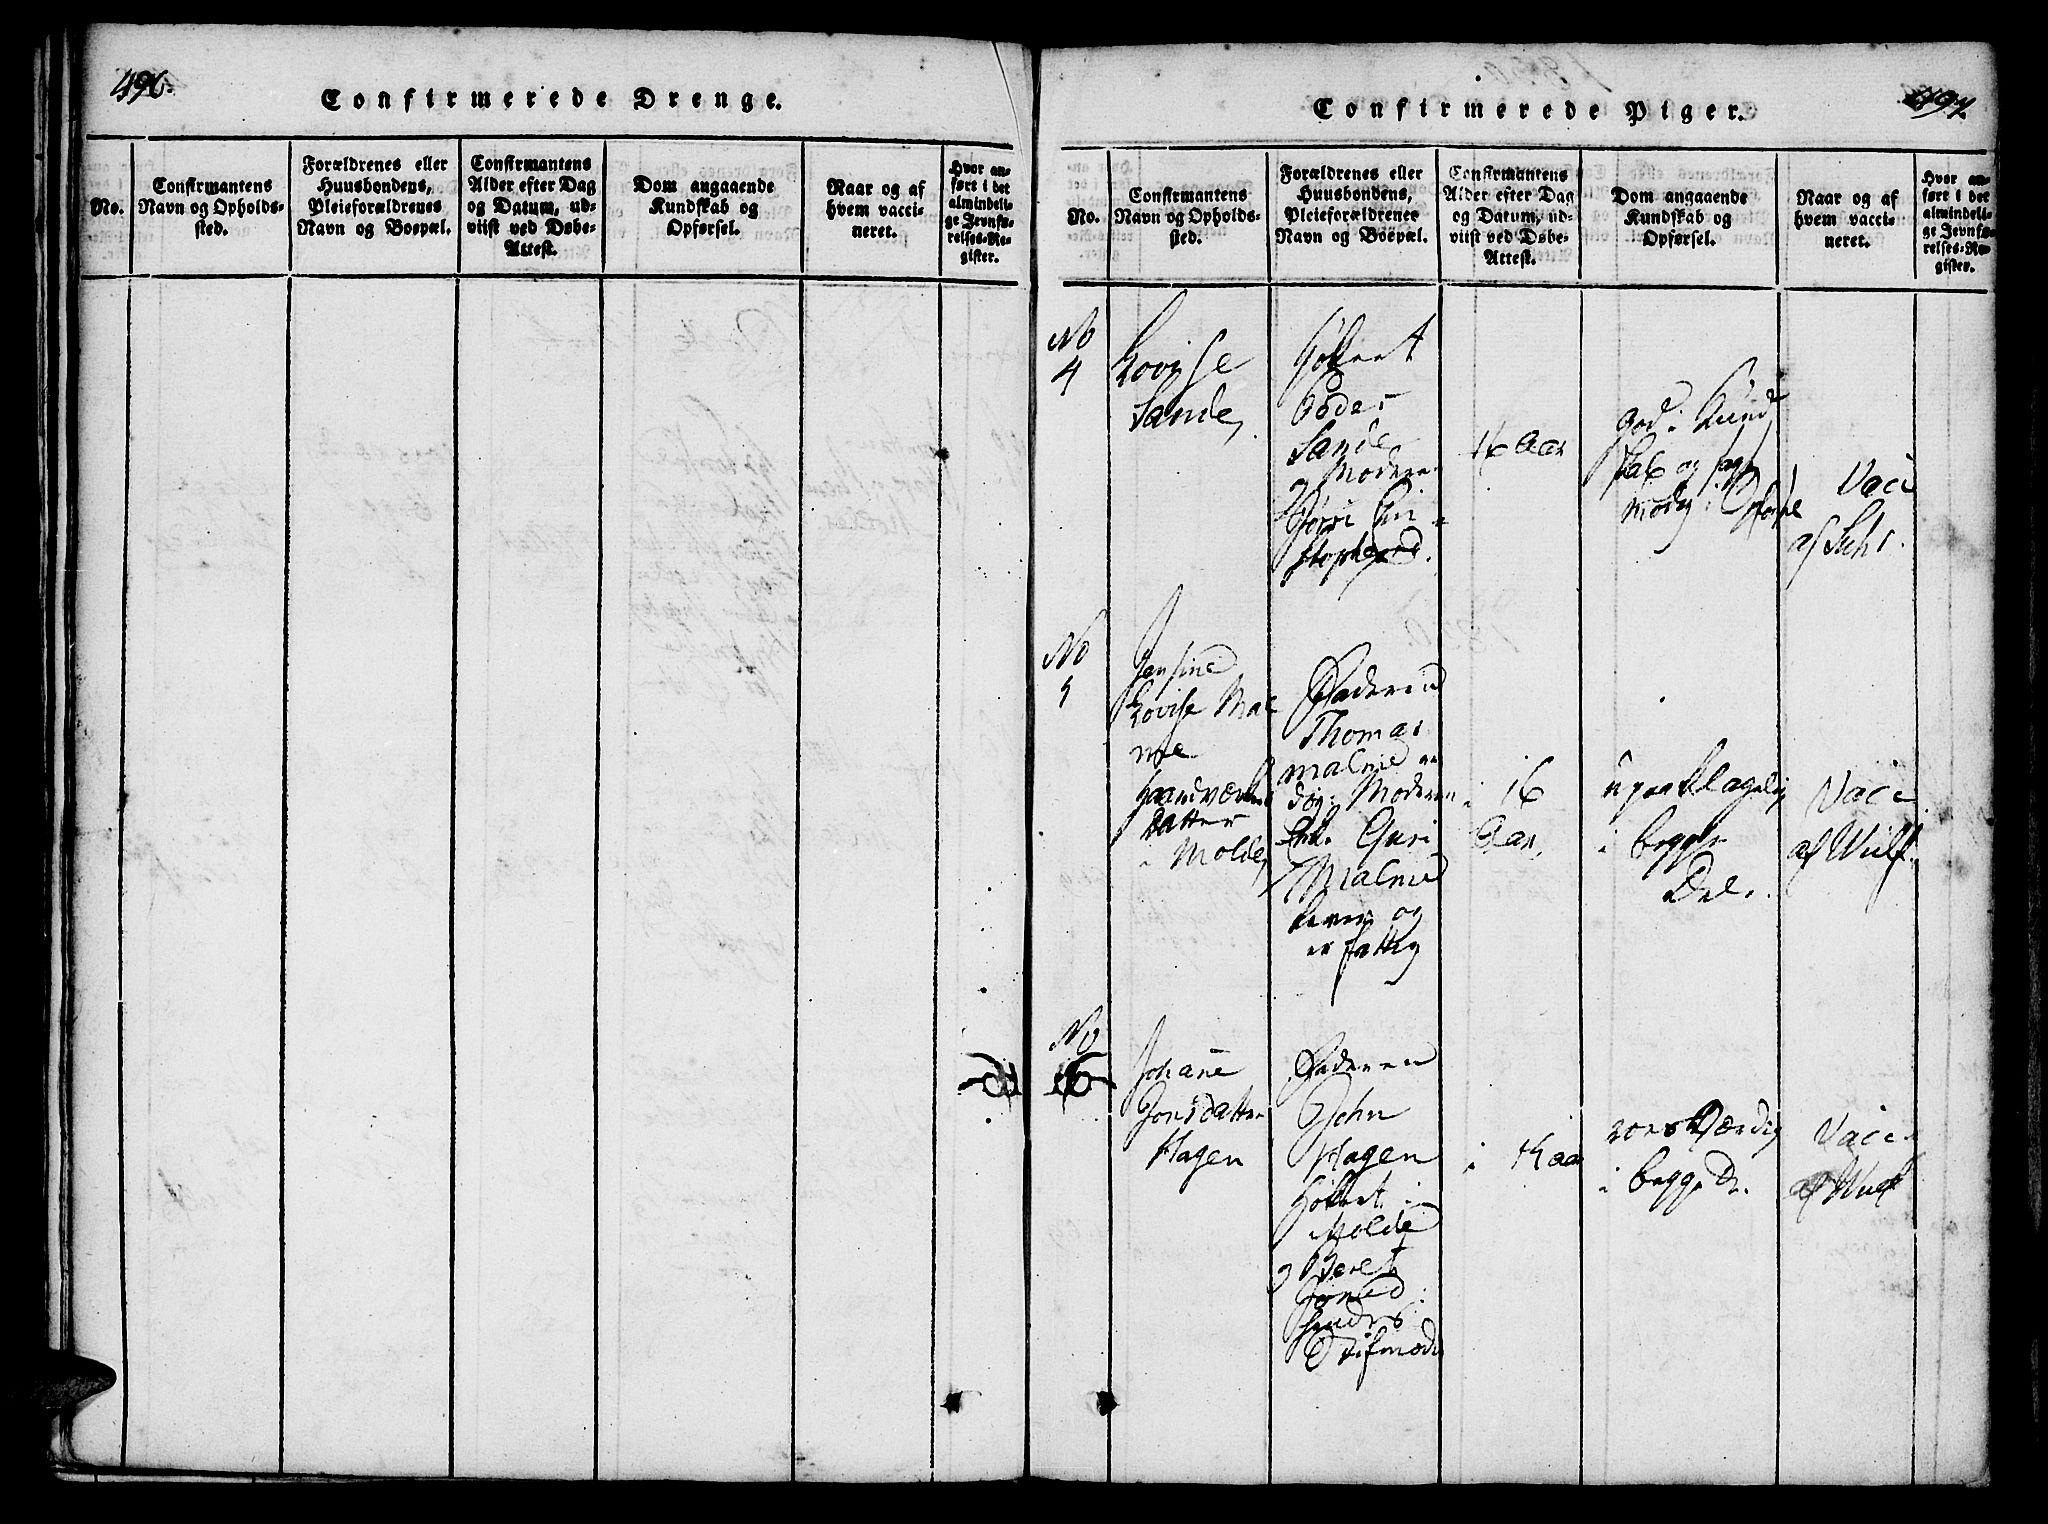 496.
Confirmerede Drenge.
No.
Confirmantens
Navn og Opholds-
sted.
Forældrenes eller
Huusbondens,
Pleieforældrenes
Navn og Boepæl.
Confirmantens
Alder efter Dag
og Datum, ud-
viist ved Døbe-
Attest.
Dom angaaende
Kundskab og
Opførsel.
Naar og af
hvem vacci-
neret.
Hvor an-
ført i det
almindeli-
ge Jevnfø-
relses-Re-
gister.
497
Confirmerede Piger.
No.
Confirmantens
Navn og Opholds-
sted.
Forældrenes eller
Huusbondens,
Pleieforældrenes
Navn og Boepæl.
Confirmantens
Alder efter Dag
og Datum, ud-
viist ved Døbe-
Attest.
Dom angaaende
Kundskab og
Opførsel.
Naar og af
hvem vacci-
neret.
Hvor an-
ført i det
almindeli-
ge Jevnfø-
relses-Re-
gister.
No
4
Lovise
Sande,
Peder
Sande
og Moderen
16 Aar
god i Kund
skab og
modig i
Vacc
af Suhr.
No
5
Jensine
Lovise Mal
me
Haandværks
Datter
i Molde,
Faderen
Thomas
Malme er
død. Moderen
Enk. Guri
Malme
lever og
er fattig
i 16
Aar,
upaaklagelig
i begge
Dele.
Vacc.
af Wulf.
No
Johane
Jonsdatter
Hagen
Faderen
John
Hagen
i
Molde
og Beret
Stifmoder
i
roesværdig
i begge D.
Vacc.
af Wulf